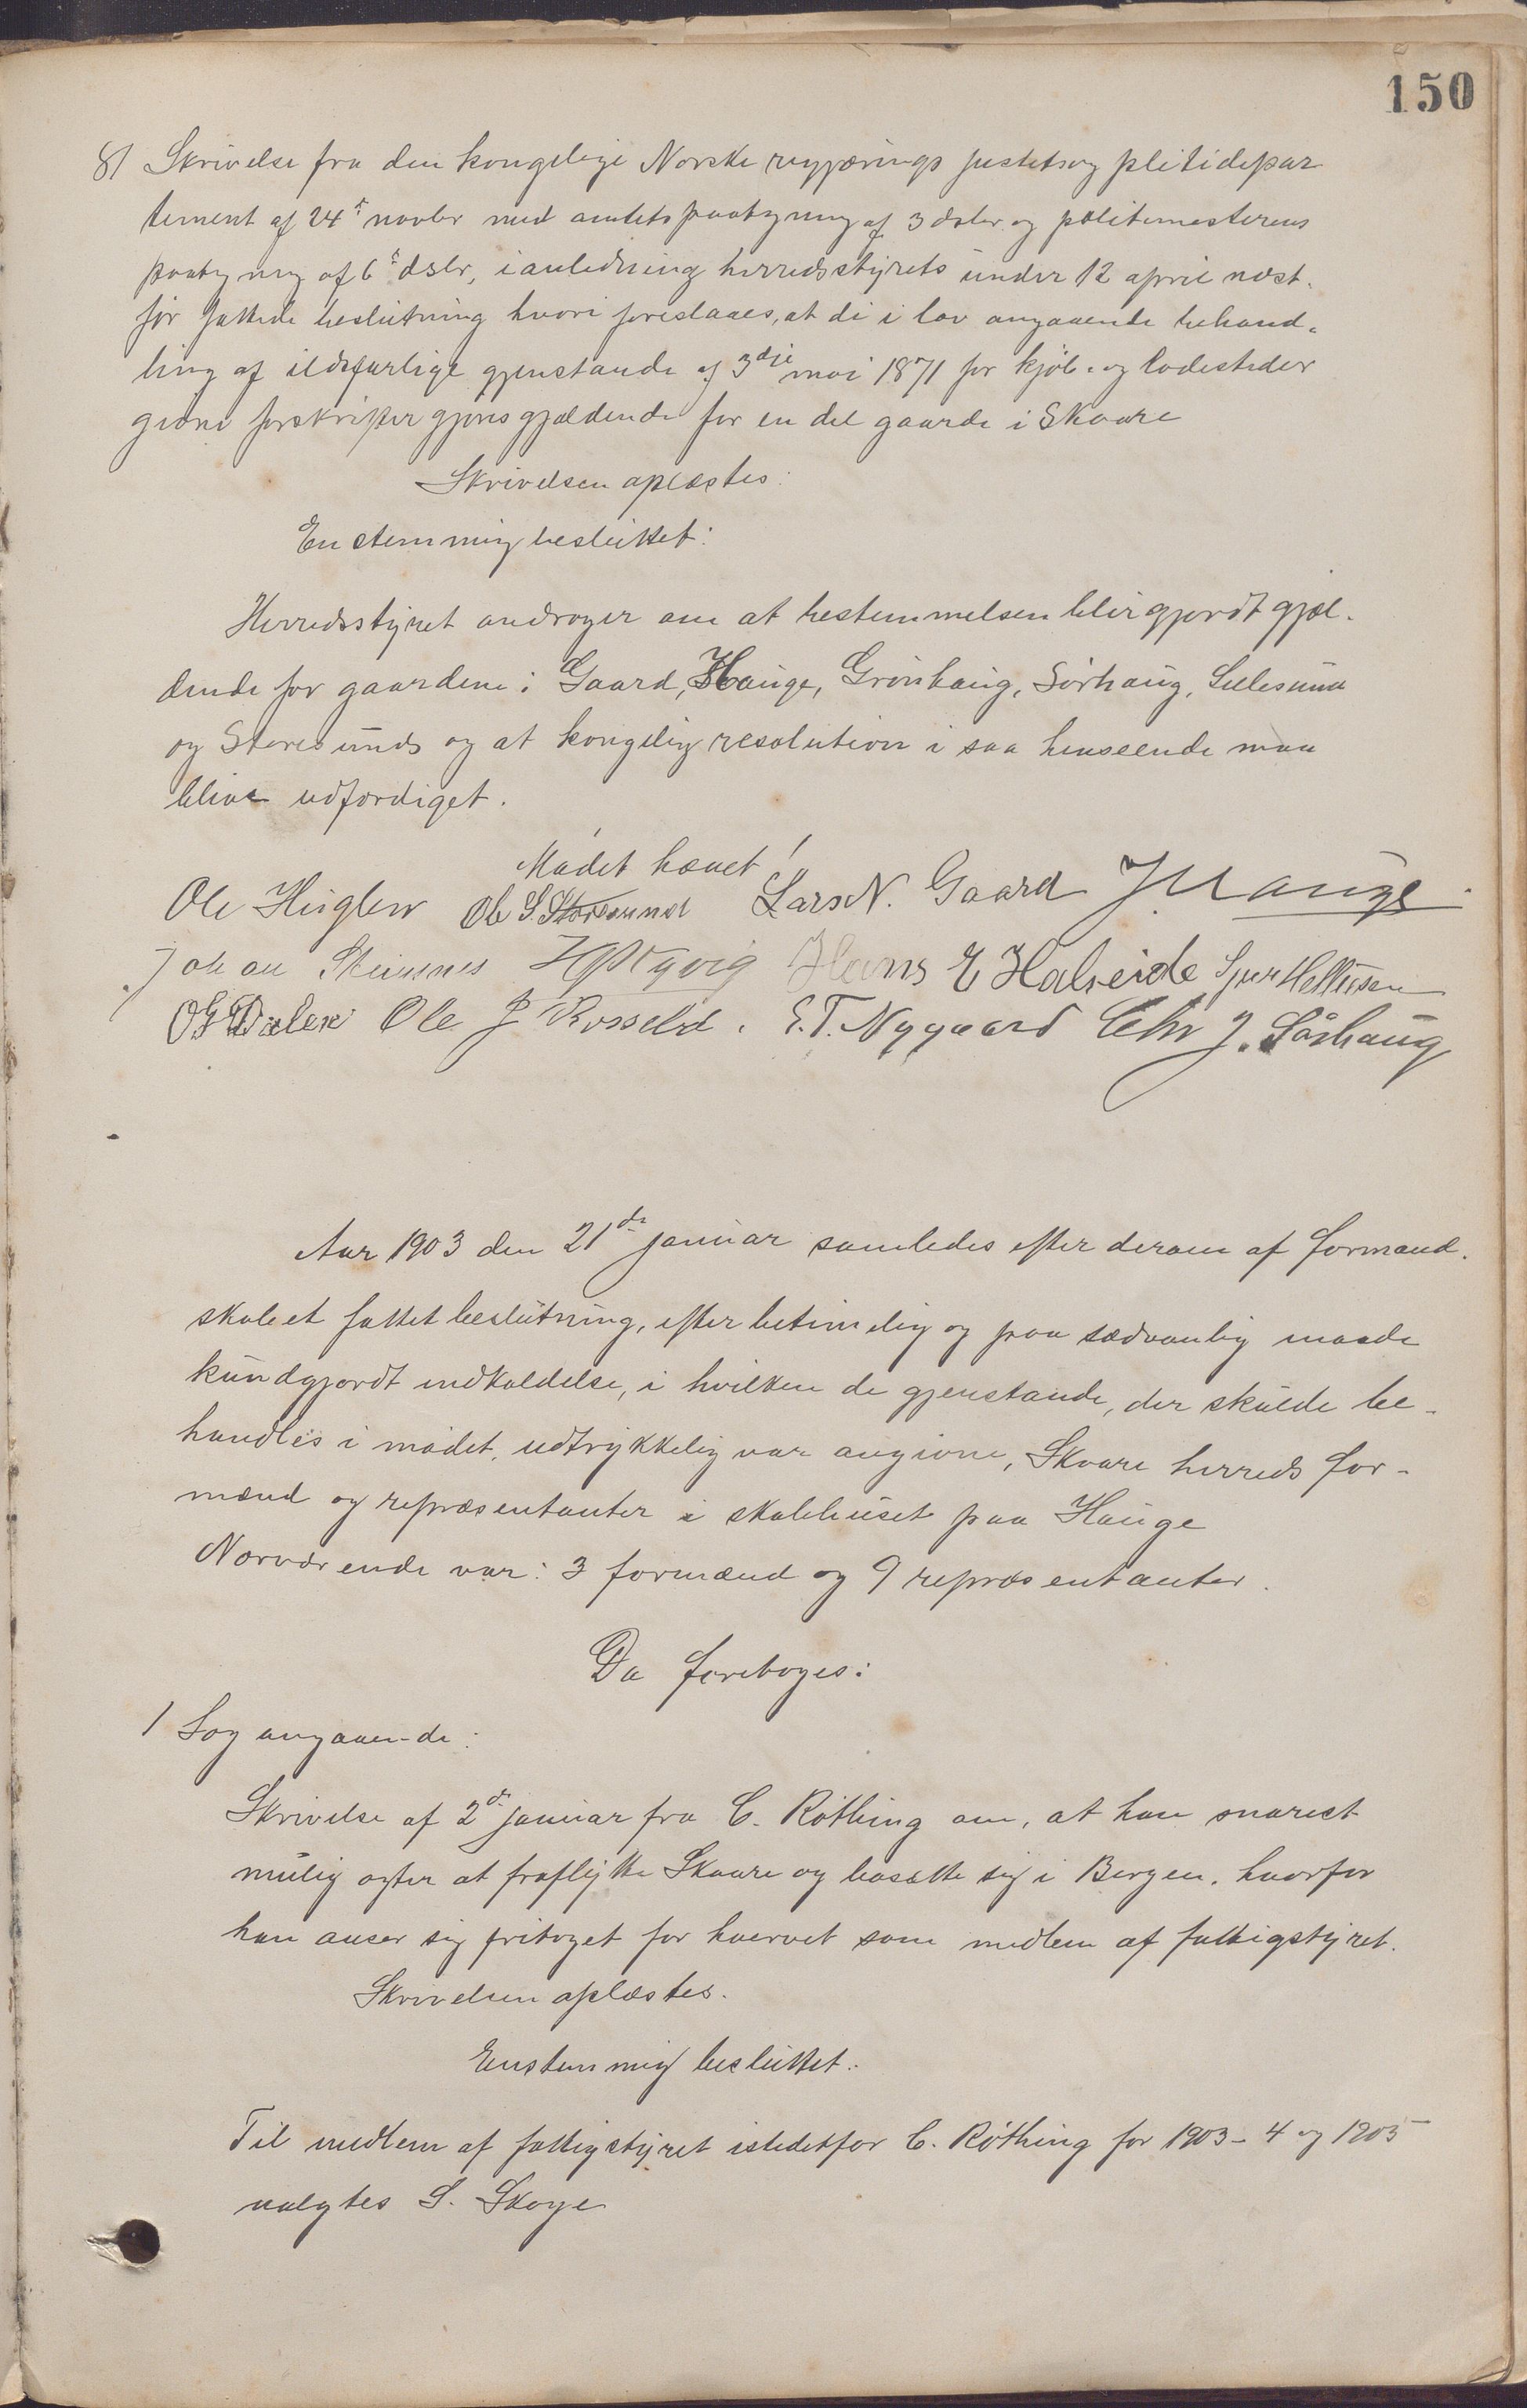 150
8/ Skrivelse fra den kongelige Norske regjærings justitsog plitidepar
tement af 24de novbr med amtets paategning af 3 dsbr og politimesterens
paategning af 6te dsbr, i anledning herredsstyrets under 12 april næst-
før fattede beslutning hvori foreslaaes, at de i lov angaaende behand-
ling af ildsfarlige gjenstande af 3die mai 1871 for kjøb- og ladesteder
givne forskrifter gjøres gjældende for en del gaarde i Skaare
Skrivelsen oplæstes:
Enstemmig besluttet:
Herredsstyret androger om at bestemmelsen blir gjordt gjæl-
dende for gaardene: Gaard, Hauge, Grønhaug, Sørhaug, Lillesund
og Storesunds og at kongelig resolution i saa henseende maa
blive udfærdiget.
Mødet hævet!
Ole Huglen Ole S. Storesund Lars N. Gaard J. Hauge
Johan Steinsnes Hans E Halseide Sjur Hellesen
Ole J Røsseld. E. T. Nygaard Chr J. Sørhaug
Aar 1903 den 21de januar samledes efter derom af formand-
skabet fattet beslutning, efter betimelig og paa sædvanlig maade
kundgjordt indkaldelse, i hvilken de gjenstande, der skulde be-
handles i mødet, udtrykkelig var angivne, Skaare herreds for-
mænd og repræsentanter i skolehuset paa Hauge
Nærværende var: 3 formænd og 9 repræsentanter.
Da foretoges:
1 Sag angaaende:
Skrivelse af 2de januar fra C. Røthing om, at han snarest
mulig agter at fraflytte Skaare og bosætte sig i Bergen, hvorfor
han anser sig fritaget for hvervet som medlem af fattigstyret.
Skrivelsen oplæstes.
Enstemmig besluttet:
Til medlem af fattigstyret istedetfor C. Røthing for 1903-4 og 1905
valgtes S. Skoge